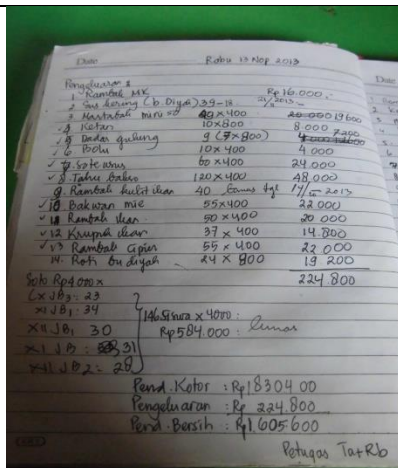 Date Rabu 13 Nop 2013
Pengeluaran :
1 Rambak MK Rp 16.000,-
2 Sus kering (b. Diyah) 39-18
3 Martabak mini 49 x 400 19600
4. Ketan 10x800 8.000
5. Dadar gulung 9 (7x800)
6 Bolu 10 x 400 4 000
7. Sate usus 60 x 400 24.000
8 Tahu bakso 120 x 400 48,000
9. Rambak kulit ikan 40 Lunas tgl 17/ 2013
10 Bakwan mie 55x400 22 000
11 Rambak ikan 50 x 400 20 000
12 Krupuk ikan 37 x 400 14.800
13 Rambak 55 x 400 22 000
14. Roti bu diyah 24 x 800 19 200
224.800
Soto Rp4000 x
X JB3 : 23
XI JB1 : 34
XII JB1 30
XI JB : 31
XII JB 2 : 28
146 Siswa x 4000 :
Rp 584.000 : Lunas
Pend. Kotor : Rp 18304 00
Pengeluaran : Rp 224.800
Pend. Bersih : Rp 1.605.600
Petugas Ta+Rb
Date